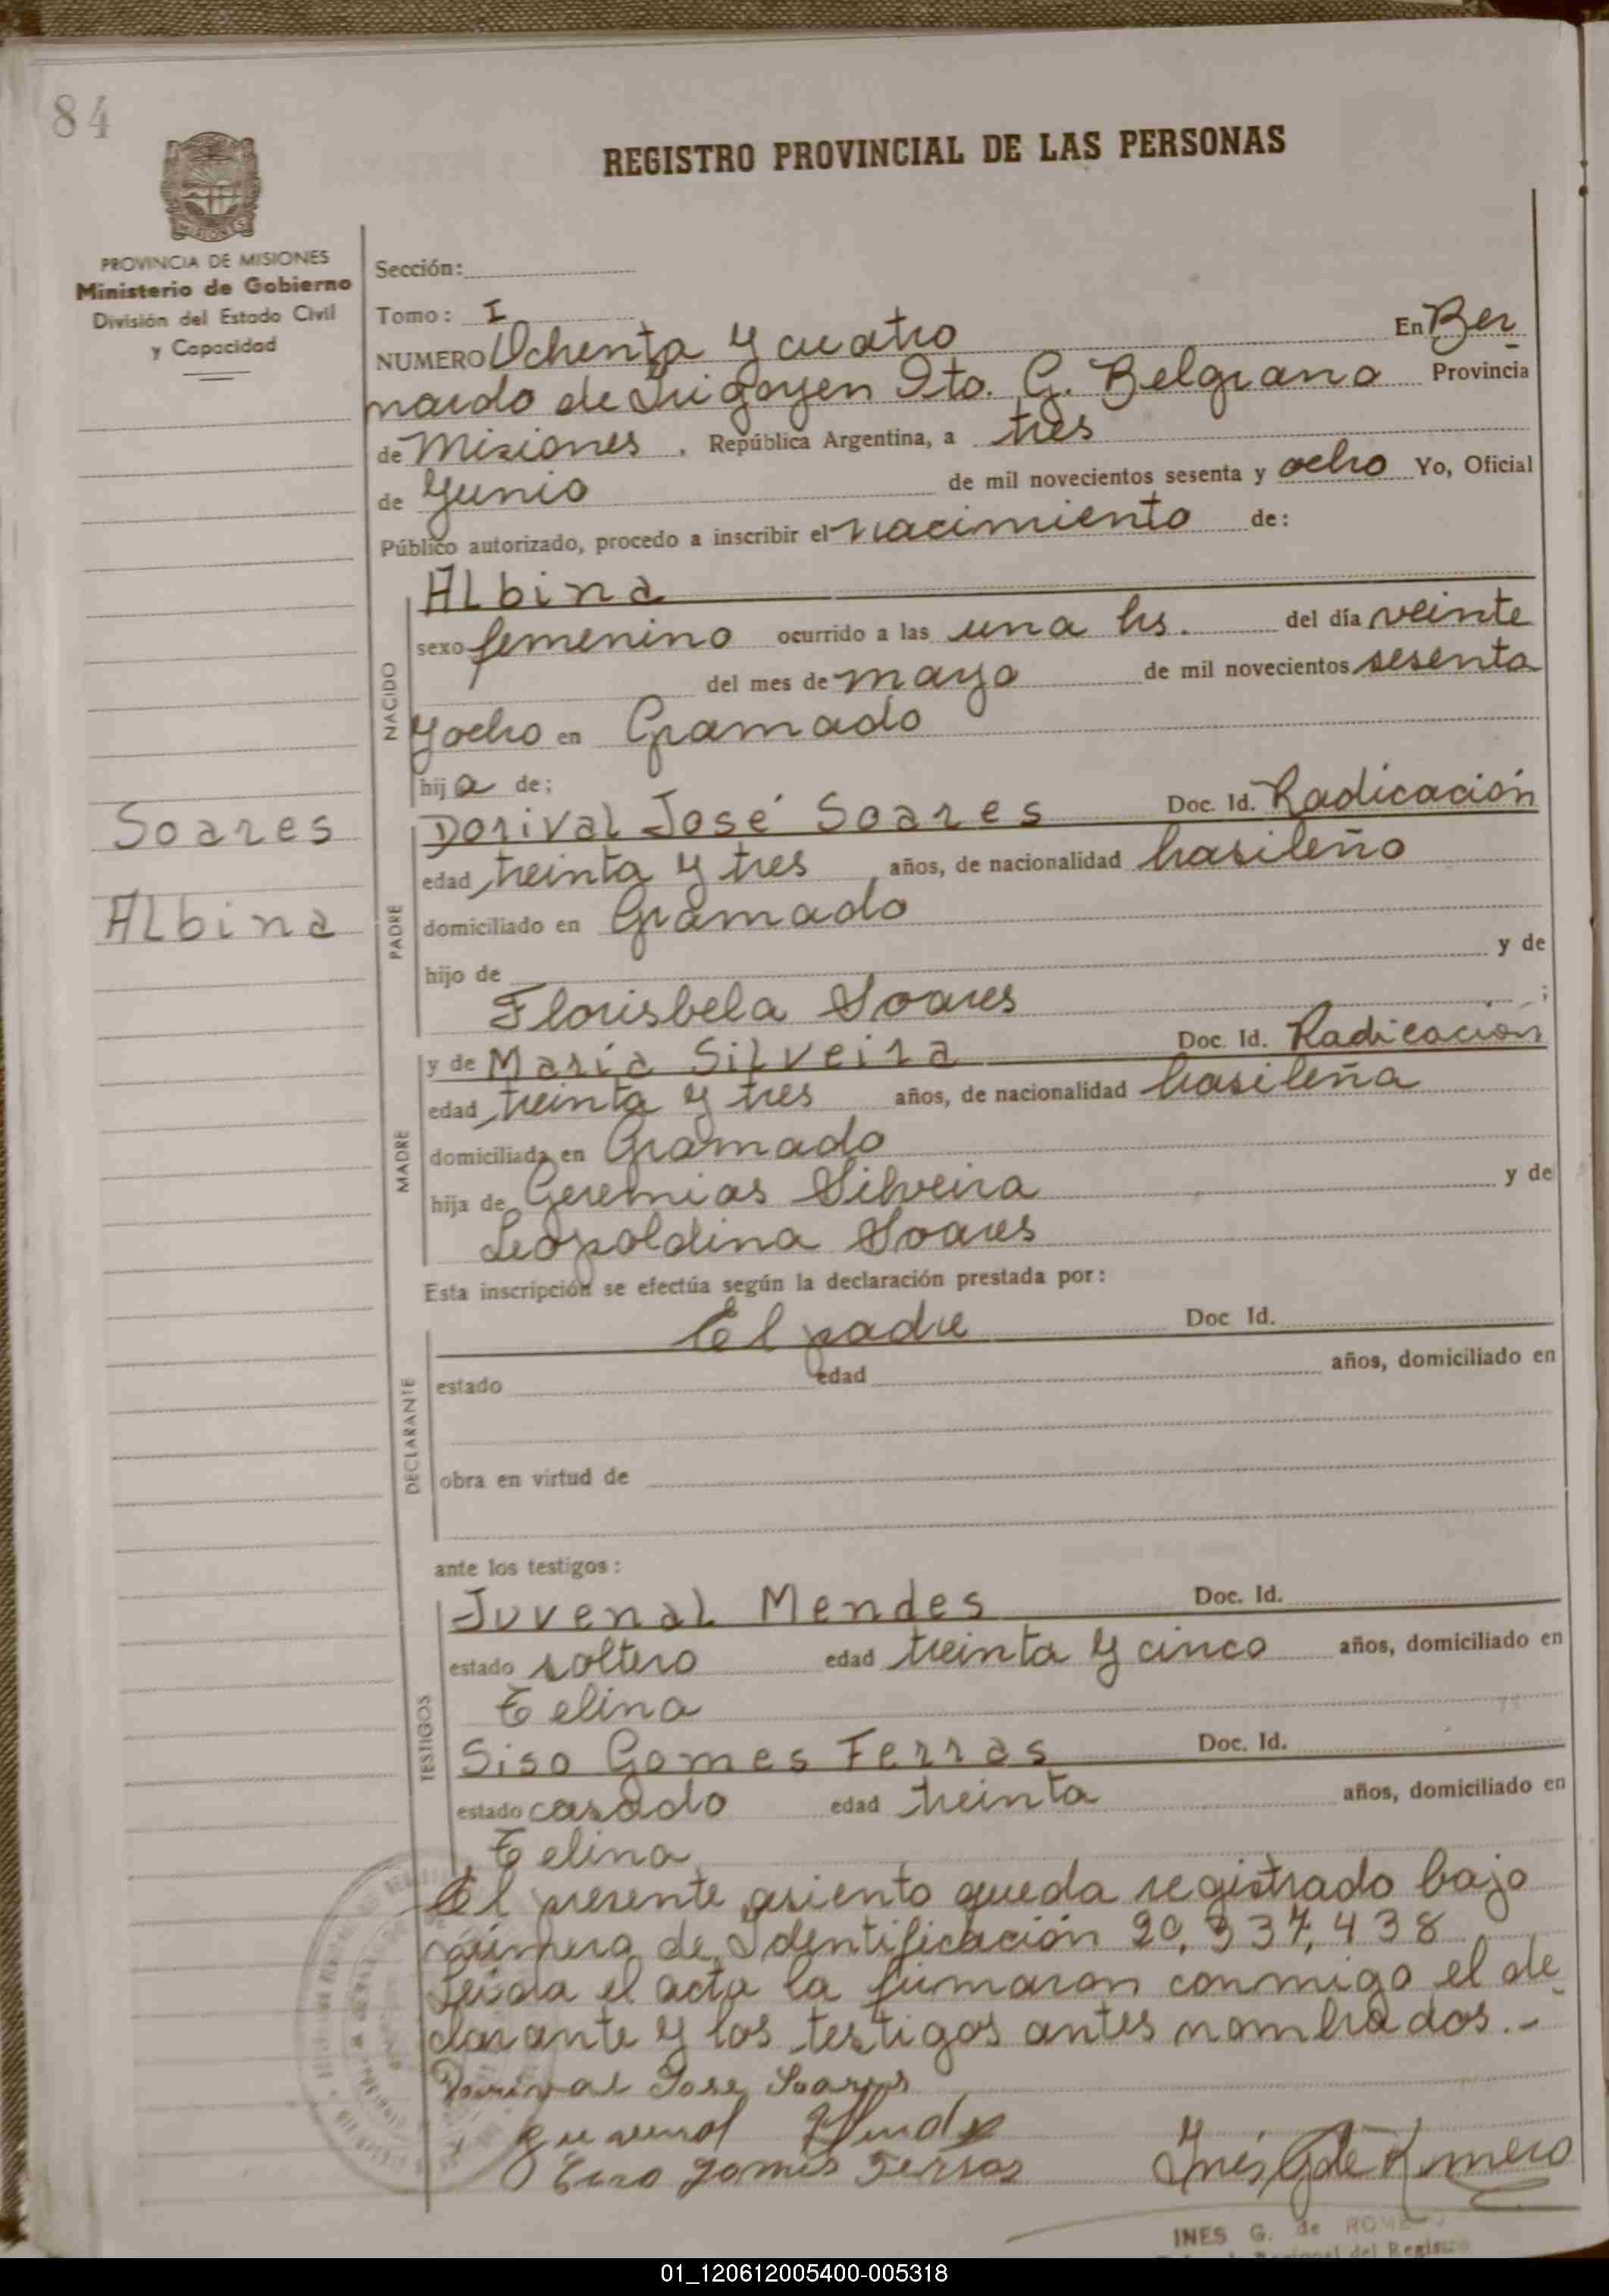 84
REGISTRO PROVINCIAL DE LAS PERSONAS
MISIONES
PROVINCIA DE MISIONES
Ministerio de Gobierno
División del Estado Civil
y Capacidad
Sección:
Tomo: I
NUMERO Ochenta y cuatro En Ber
nardo de Irigoyen Dto. G. Belgrano Provincia
de Misiones, República Argentina, a tres
de Junio de mil novecientos sesenta y ocho Yo, Oficial
Público autorizado, procedo a inscribir el nacimiento de:
NACIDO
Albina
sexo femenino ocurrido a las una hs. del día veinte
del mes de mayo de mil novecientos sesenta
y ocho en Gramado
hija de;
Soares
Albina
PADRE
Dorival José Soares Doc. Id. Radicación
edad treinta y tres años, de nacionalidad brasileño
domiciliado en Gramado
hijo de y de
Florisbela Soares ;
MADRE
y de María Silveira Doc. Id. Radicación
edad treinta y tres años, de nacionalidad brasileña
domiciliada en Gramado
hija de Geremias Silveira y de
Leopoldina Soares
Esta inscripción se efectúa según la declaración prestada por:
DECLARANTE
El padre Doc. Id.
estado edad años, domiciliado en
obra en virtud de
ante los testigos:
TESTIGOS
Juvenal Mendes Doc. Id.
estado soltero edad treinta y cinco años, domiciliado en
Celina
Siso Gomes Ferras Doc. Id.
estado casado edad treinta años, domiciliado en
Celina
El presente asiento queda registrado bajo
número de Identificación 20,337,438
Leída el acta la firmaron conmigo el de
clarante y los testigos antes nombrados.-
Dorival Jose Soares
Gomes Ferras Inés G de Romero
INES G. de ROMERO
del Registro
01_120612005400-005318